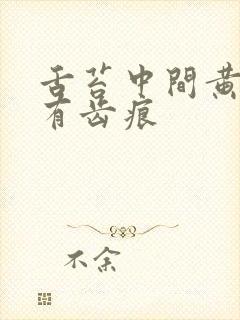 舌苔中間黄
有齿痕
不余